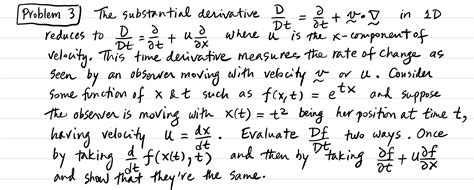 Problem 3) The substantial derivative D/Dt = ∂/∂t + v·∇ in 1D
reduces to D/Dt = ∂/∂t + u ∂/∂x where u is the x-component of
velocity. This time derivative measures the rate of change as
seen by an observer moving with velocity v or u. Consider
some function of x & t such as f(x,t) = e^{tx} and suppose
the observer is moving with x(t) = t² being her position at time t,
having velocity u = dx/dt. Evaluate Df/Dt two ways. Once
by taking d/dt f(x(t),t) and then by taking ∂f/∂t + u ∂f/∂x
and show that they're the same.